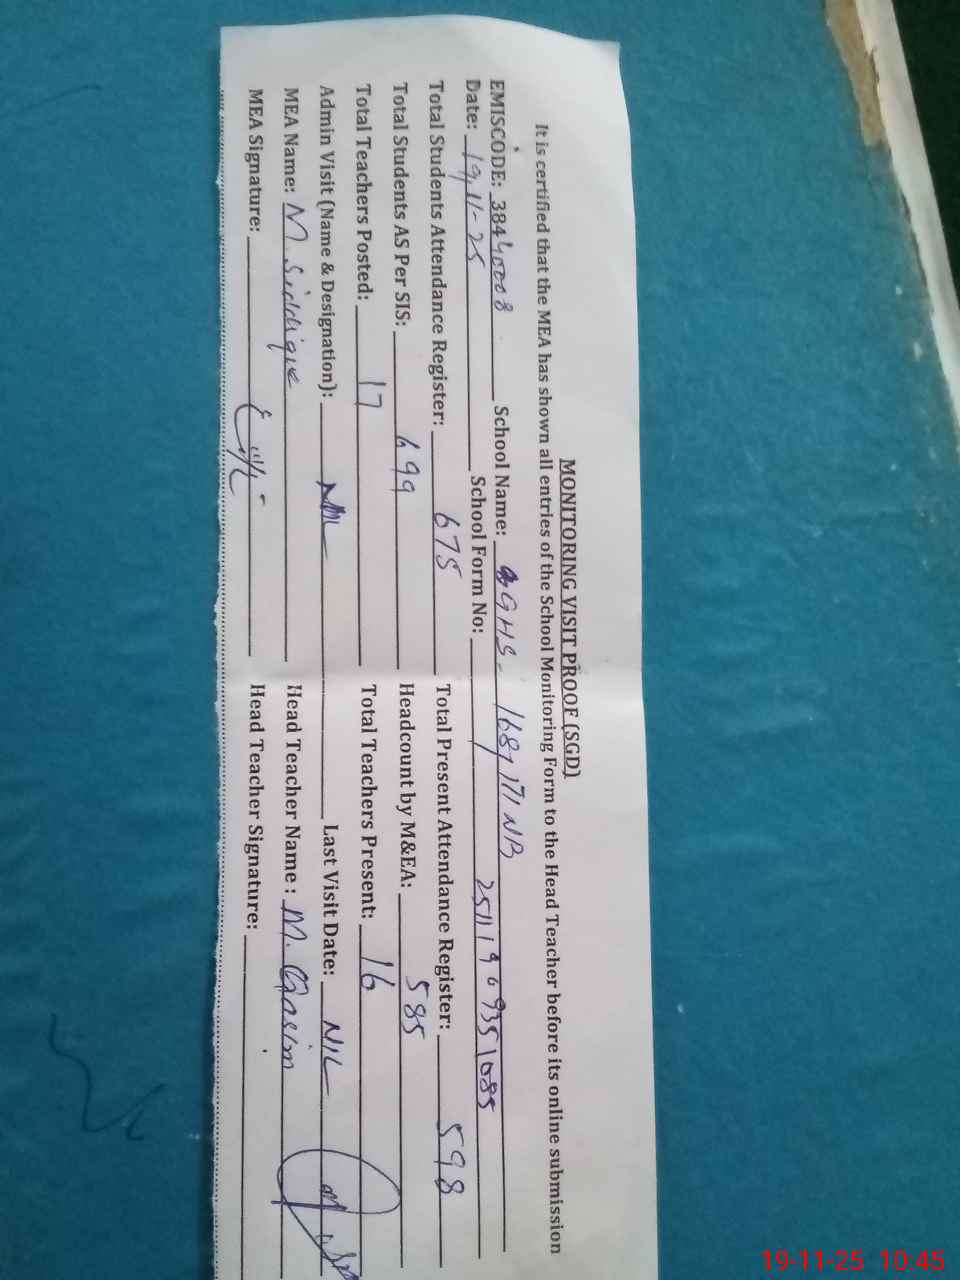 MONITORING VISIT PROOF (SGD)
It is certified that the MEA has shown all entries of the School Monitoring Form to the Head Teacher before its online submission
EMISCODE: 38440008 School Name: GHS. 168/171 NB
Date: 19-11-25 School Form No: 25111909351085
Total Students Attendance Register: 675 Total Present Attendance Register: 598
Total Students AS Per SIS: 699 Headcount by M&EA: 585
Total Teachers Posted: 17 Total Teachers Present: 16
Admin Visit (Name & Designation): NIL Last Visit Date: NIL
MEA Name: M. Siddique Head Teacher Name : M. Qasim
MEA Signature: Head Teacher Signature:
19-11-25 10:45